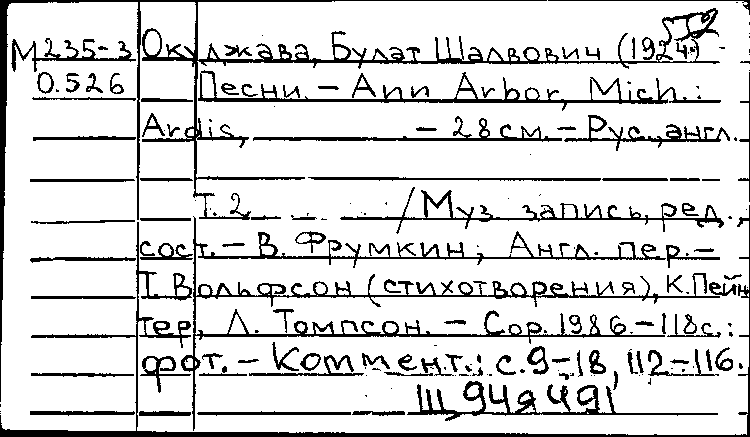 М235-3 Окуджава, Булат Шалвович (1924-)
0.526 Песни. - Ann Arbor, Mich.:
Ardis, - 28 см. - Рус., англ.
Т. 2 / Муз. запись, ред.,
сост. - В. Фрумкин; Англ. пер. -
Т. Вольфсон (стихотворения), К. Пейн
тер, Л. Томпсон. - Cop. 1986. - 118 с.:
фот. - Коммент.: с. 9-18, 112-116.